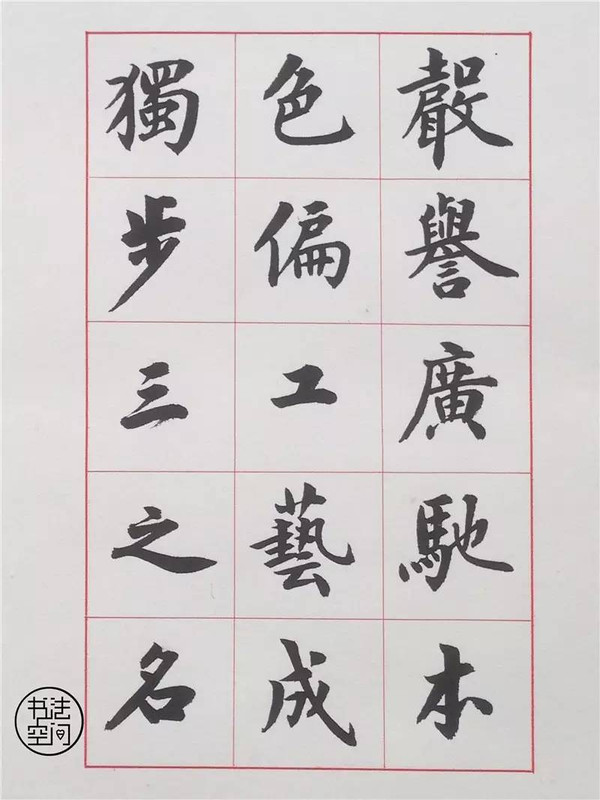 聲譽廣馳本
色偏工藝成
獨步三之名
书法
空间